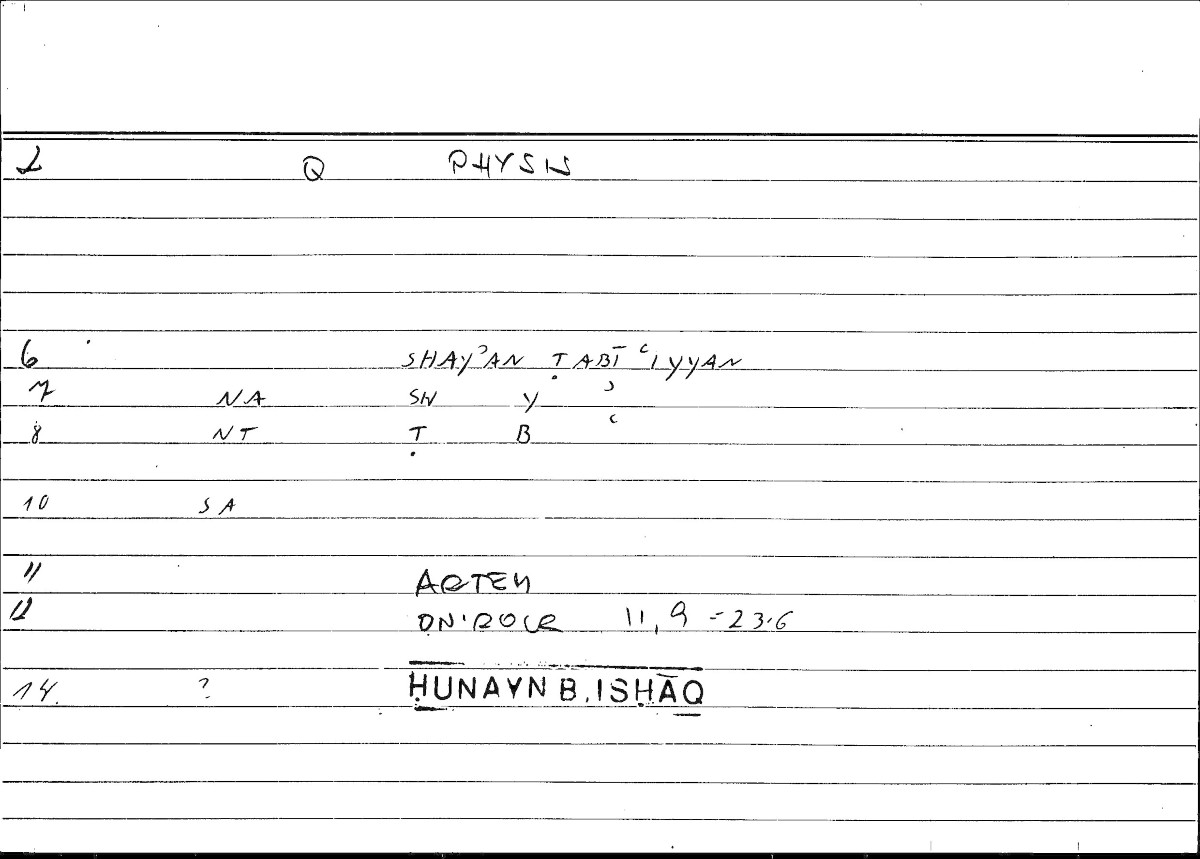 1 Q PHYSIS
6 SHAYʾAN ṬABĪʿIYYAN
7 NA SH Y ʾ
8 NT Ṭ B ʿ
10 SA
11 ARTEM
12 ONIROCR 11,9 = 23.6
14. ? ḤUNAYN B. ISḤĀQ